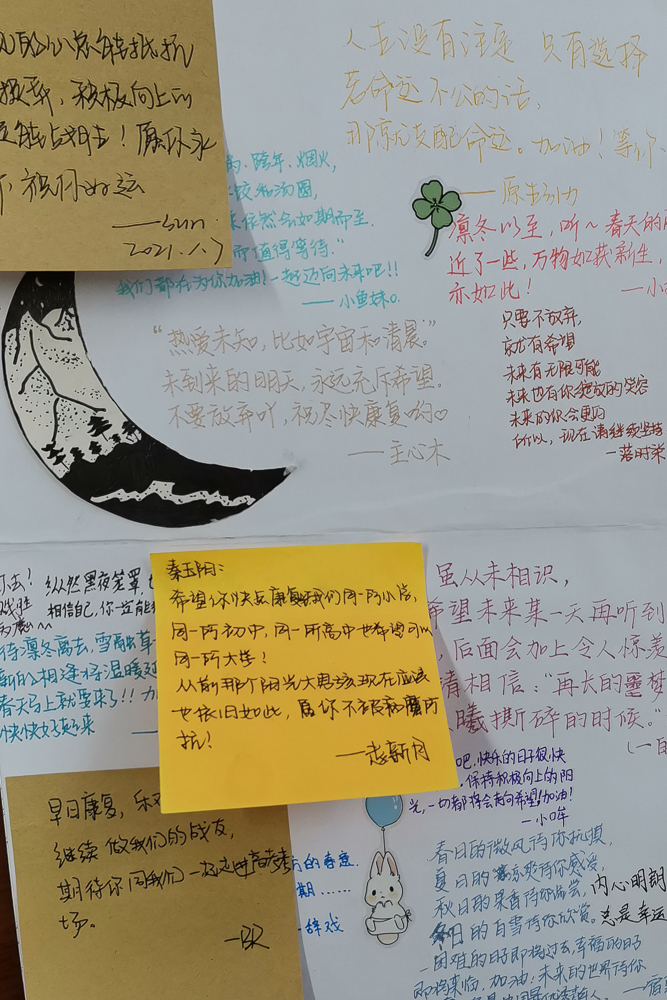 积极向上的
定能战胜！愿你永
祝你好运
——Sun.
2021.1.7
人生没有注定 只有选择
若命运不公的话，
那就支配命运。加油！等你
的、跨年、烟火，
饺和汤圆，
依然会如期而至.
而值得等待.”
我们都在为你加油！一起迈向未来吧!!
——小鱼妹o.
凛冬以至，听～春天的
近了一些，万物如获新生，
亦如此！
“热爱未知，比如宇宙和清晨。”
未到来的明天，永远充斥希望。
不要放弃吖，祝尽快康复哟♡
——主心木
只要不放弃，
就有希望
未来有无限可能
未来也有你绽放的笑容
未来的你会更好
所以，现在请继续坚持
—落时柒
纵然黑夜笼罩，
相信自己，你一定能
待凛冬离去，雪融草
新的相逢将温暖延
春天马上就要来了!! 
快快好起来
秦玉阳：
希望你快点康复！我们同一所小学，
同一所初中，同一所高中也希望可以
同一所大学！
从前那个阳光大男孩现在应该
也依旧如此，愿你不被病魔所
扰！
——志新月
虽从未相识，
希望未来某一天再听到
后面会加上令人惊羡
请相信：“再长的噩梦
曦撕碎的时候。”
吧，快乐的日子很快
保持积极向上的阳
光，一切都将会走向希望！加油！
—小哞
早日康复，
继续做我们的战友，
期待你同我们一起走进高考考
场。
—BR
的春意
期……
-辞戏
春日的微风待你抚顺，
夏日的凉爽待你感受，
秋日的果香待你品尝，
冬日的白雪待你欣赏。
内心明朗
总是幸运
困难的日子即将过去，幸福的日子
即将来临，加油！未来的世界待你